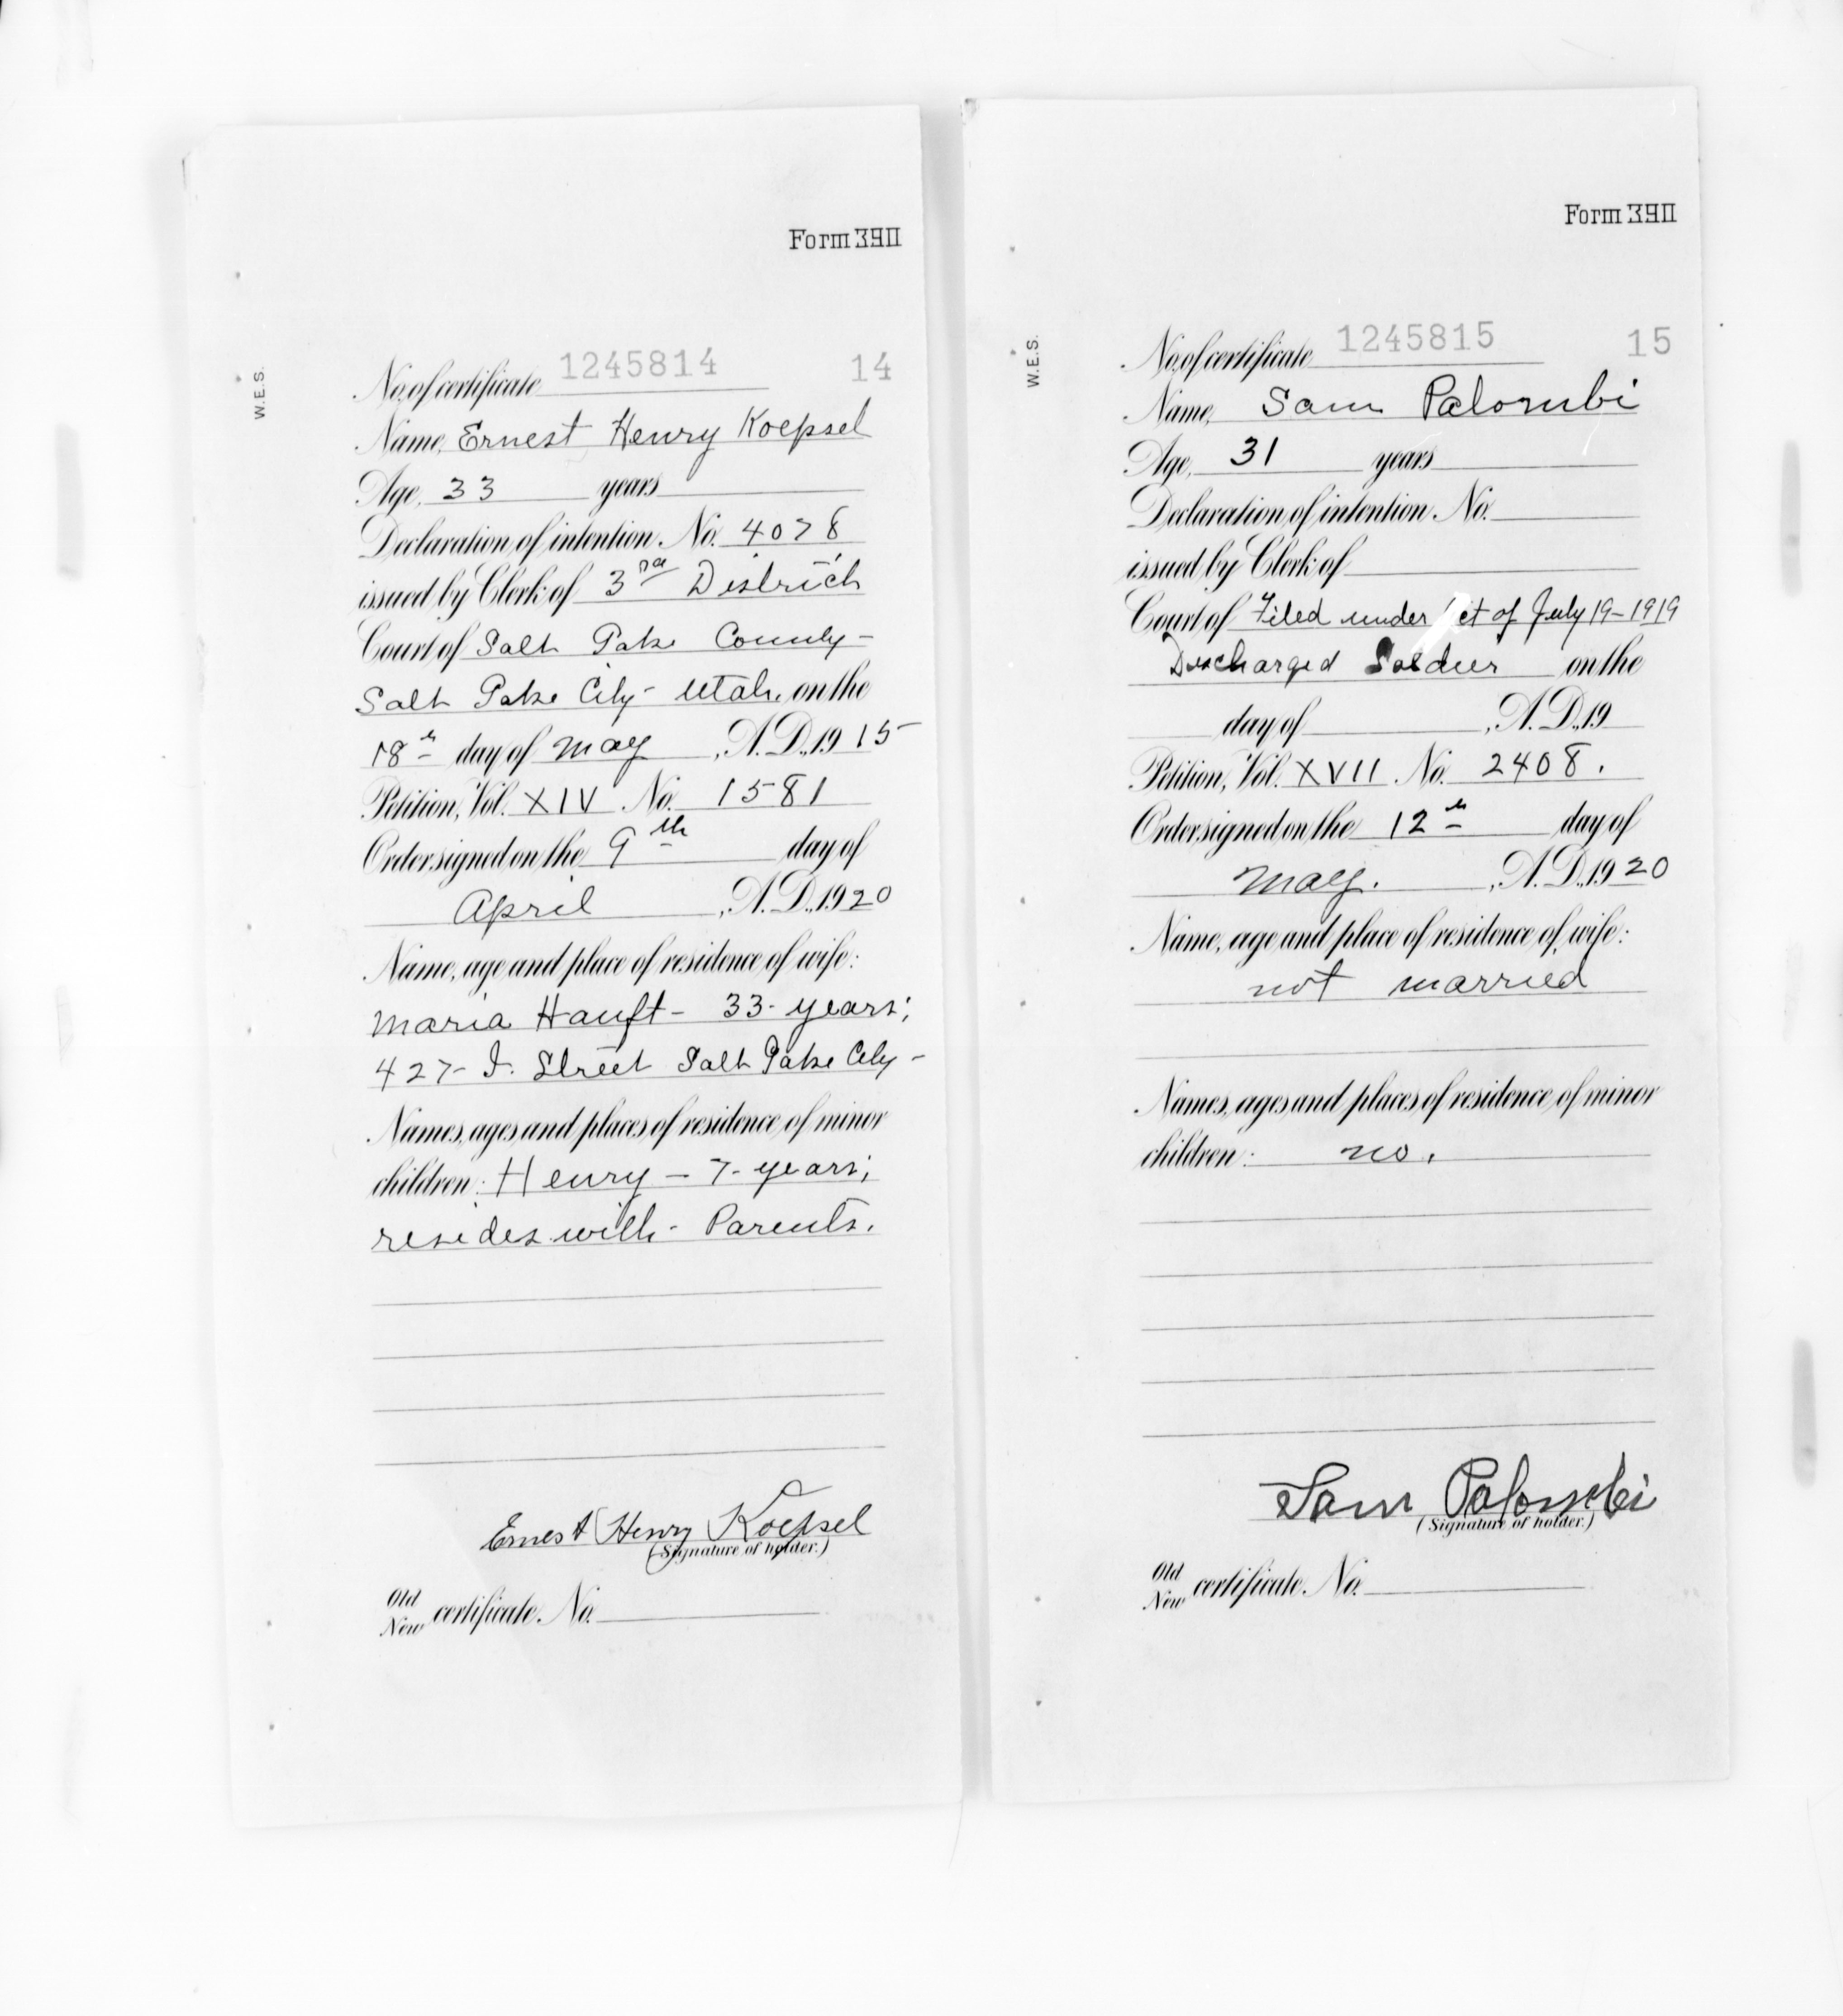 Form 390
W.E.S.
No. of certificate 1245814 14
Name, Ernest Henry Koepsel
Age, 33 years
Declaration of intention No. 4078
issued by Clerk of 3rd District
Court of Salt Lake County -
Salt Lake City - Utah. on the
18th day of May , A.D., 1915
Petition, Vol. XIV No. 1581
Order signed on the 9th day of
April , A.D., 1920
Name, age and place of residence of wife:
Maria Hauft - 33 - years;
427 - I. Street Salt Lake City -
Names, ages and places of residence of minor
children: Henry - 7 - years;
resides with - Parents.
Ernest Henry Koepsel
(Signature of holder.)
Old
New certificate No.
Form 390
W.E.S.
No. of certificate 1245815 15
Name, Sam Palombi
Age, 31 years
Declaration of intention No.
issued by Clerk of
Court of Filed under Act of July 19-1919
Discharged Soldier on the
day of , A.D., 19
Petition, Vol. XVII No. 2408.
Order signed on the 12th day of
May. , A.D., 1920
Name, age and place of residence of wife:
not married
Names, ages and places of residence of minor
children: no.
Sam Palombi
(Signature of holder.)
Old
New certificate No.